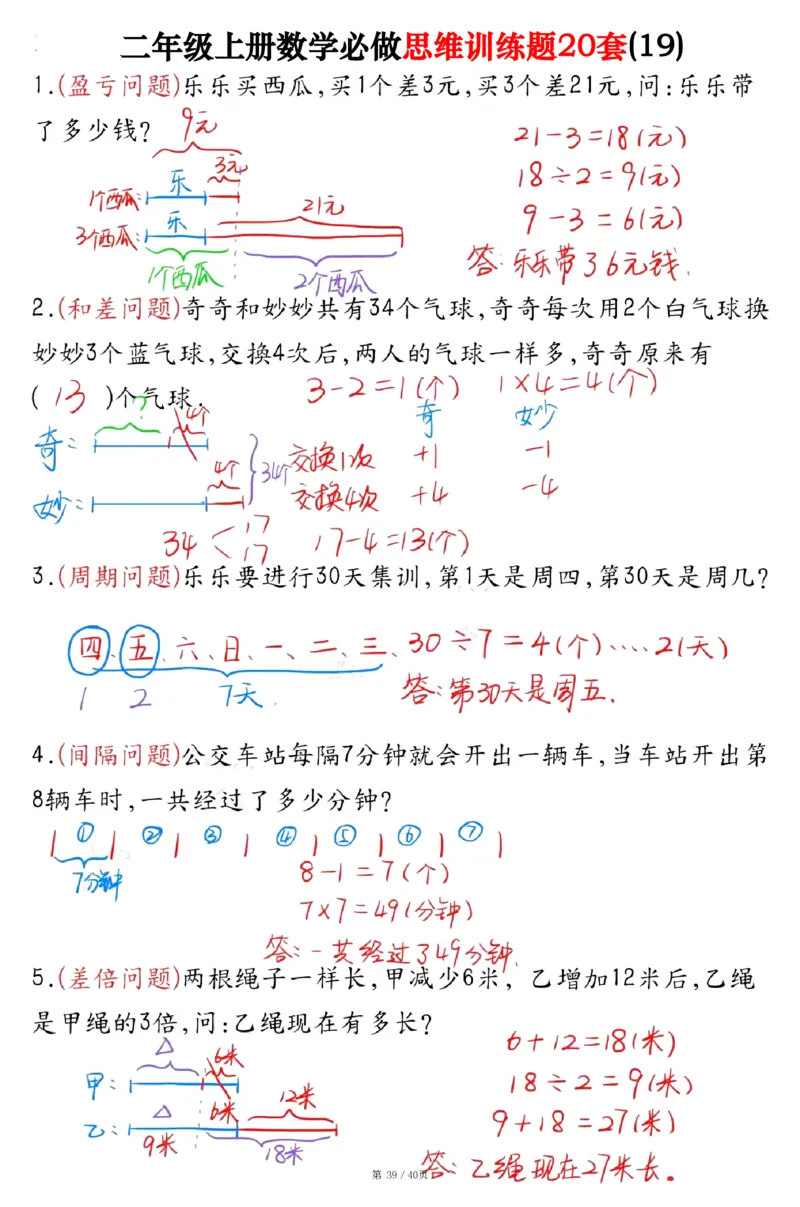 二年级上册数学必做思维训练题20套(19)
1.(盈亏问题)乐乐买西瓜,买1个差3元,买3个差21元,问:乐乐带
了多少钱?
9元
21-3=18(元)
3元
乐
18÷2=9(元)
1个西瓜:
21元
乐
9-3=6(元)
3个西瓜:
答:乐乐带了6元钱.
1个西瓜
2个西瓜
2.(和差问题)奇奇和妙妙共有34个气球,奇奇每次用2个白气球换
妙妙3个蓝气球,交换4次后,两人的气球一样多,奇奇原来有
( 13 )个气球.
3-2=1(个) 1×4=4(个)
? 4个
奇 妙
奇:
交换1次 +1 -1
4个
34个
妙:
交换4次 +4 -4
34 17 17
17-4=13(个)
3.(周期问题)乐乐要进行30天集训,第1天是周四,第30天是周几?
四、五、六、日、一、二、三、30÷7=4(个)····2(天)
1 2 7天
答:第30天是周五.
4.(间隔问题)公交车站每隔7分钟就会开出一辆车,当车站开出第
8辆车时,一共经过了多少分钟?
① ② ③ ④ ⑤ ⑥ ⑦
7分钟
8-1=7(个)
7×7=49(分钟)
答:一共经过了49分钟.
5.(差倍问题)两根绳子一样长,甲减少6米, 乙增加12米后,乙绳
是甲绳的3倍,问:乙绳现在有多长?
△ 6米
6+12=18(米)
甲:
18÷2=9(米)
△ 6米 12米
乙:
9+18=27(米)
9米 18米
答:乙绳现在27米长。
第 39 / 40页